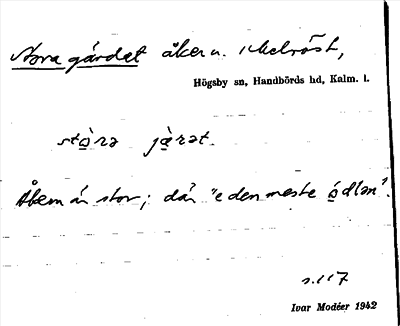 Stora gärdet åker u. Melröst,
Högsby sn, Handbörds hd, Kalm. l.
stȯ̱rə jä̱̇rət.
Åkern är stor; där "e den meste ó̱dlən".
s. 117
Ivar Modéer 1942